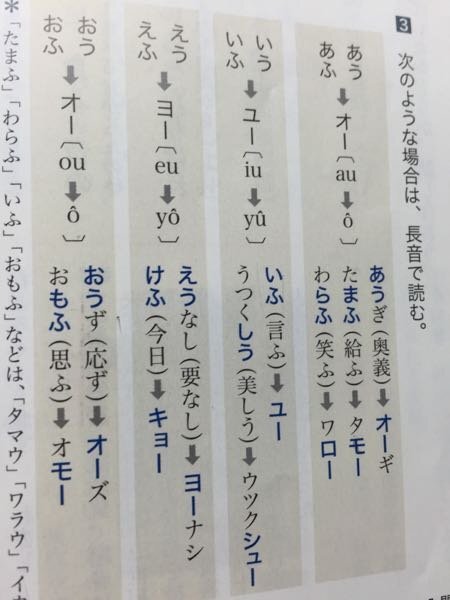 3 次のような場合は、長音で読む。
あう
あふ
➡オー〔au➡ô〕
あうぎ(奥義)➡オーギ
たまふ(給ふ)➡タモー
わらふ(笑ふ)➡ワロー
いう
いふ
➡ユー〔iu➡yû〕
いふ(言ふ)➡ユー
うつくしう(美しう)➡ウツクシュー
えう
えふ
➡ヨー〔eu➡yô〕
えうなし(要なし)➡ヨーナシ
けふ(今日)➡キョー
おう
おふ
➡オー〔ou➡ô〕
おうず(応ず)➡オーズ
おもふ(思ふ)➡オモー
*「たまふ」「わらふ」「いふ」「おもふ」などは、「タマウ」「ワラウ」「イウ